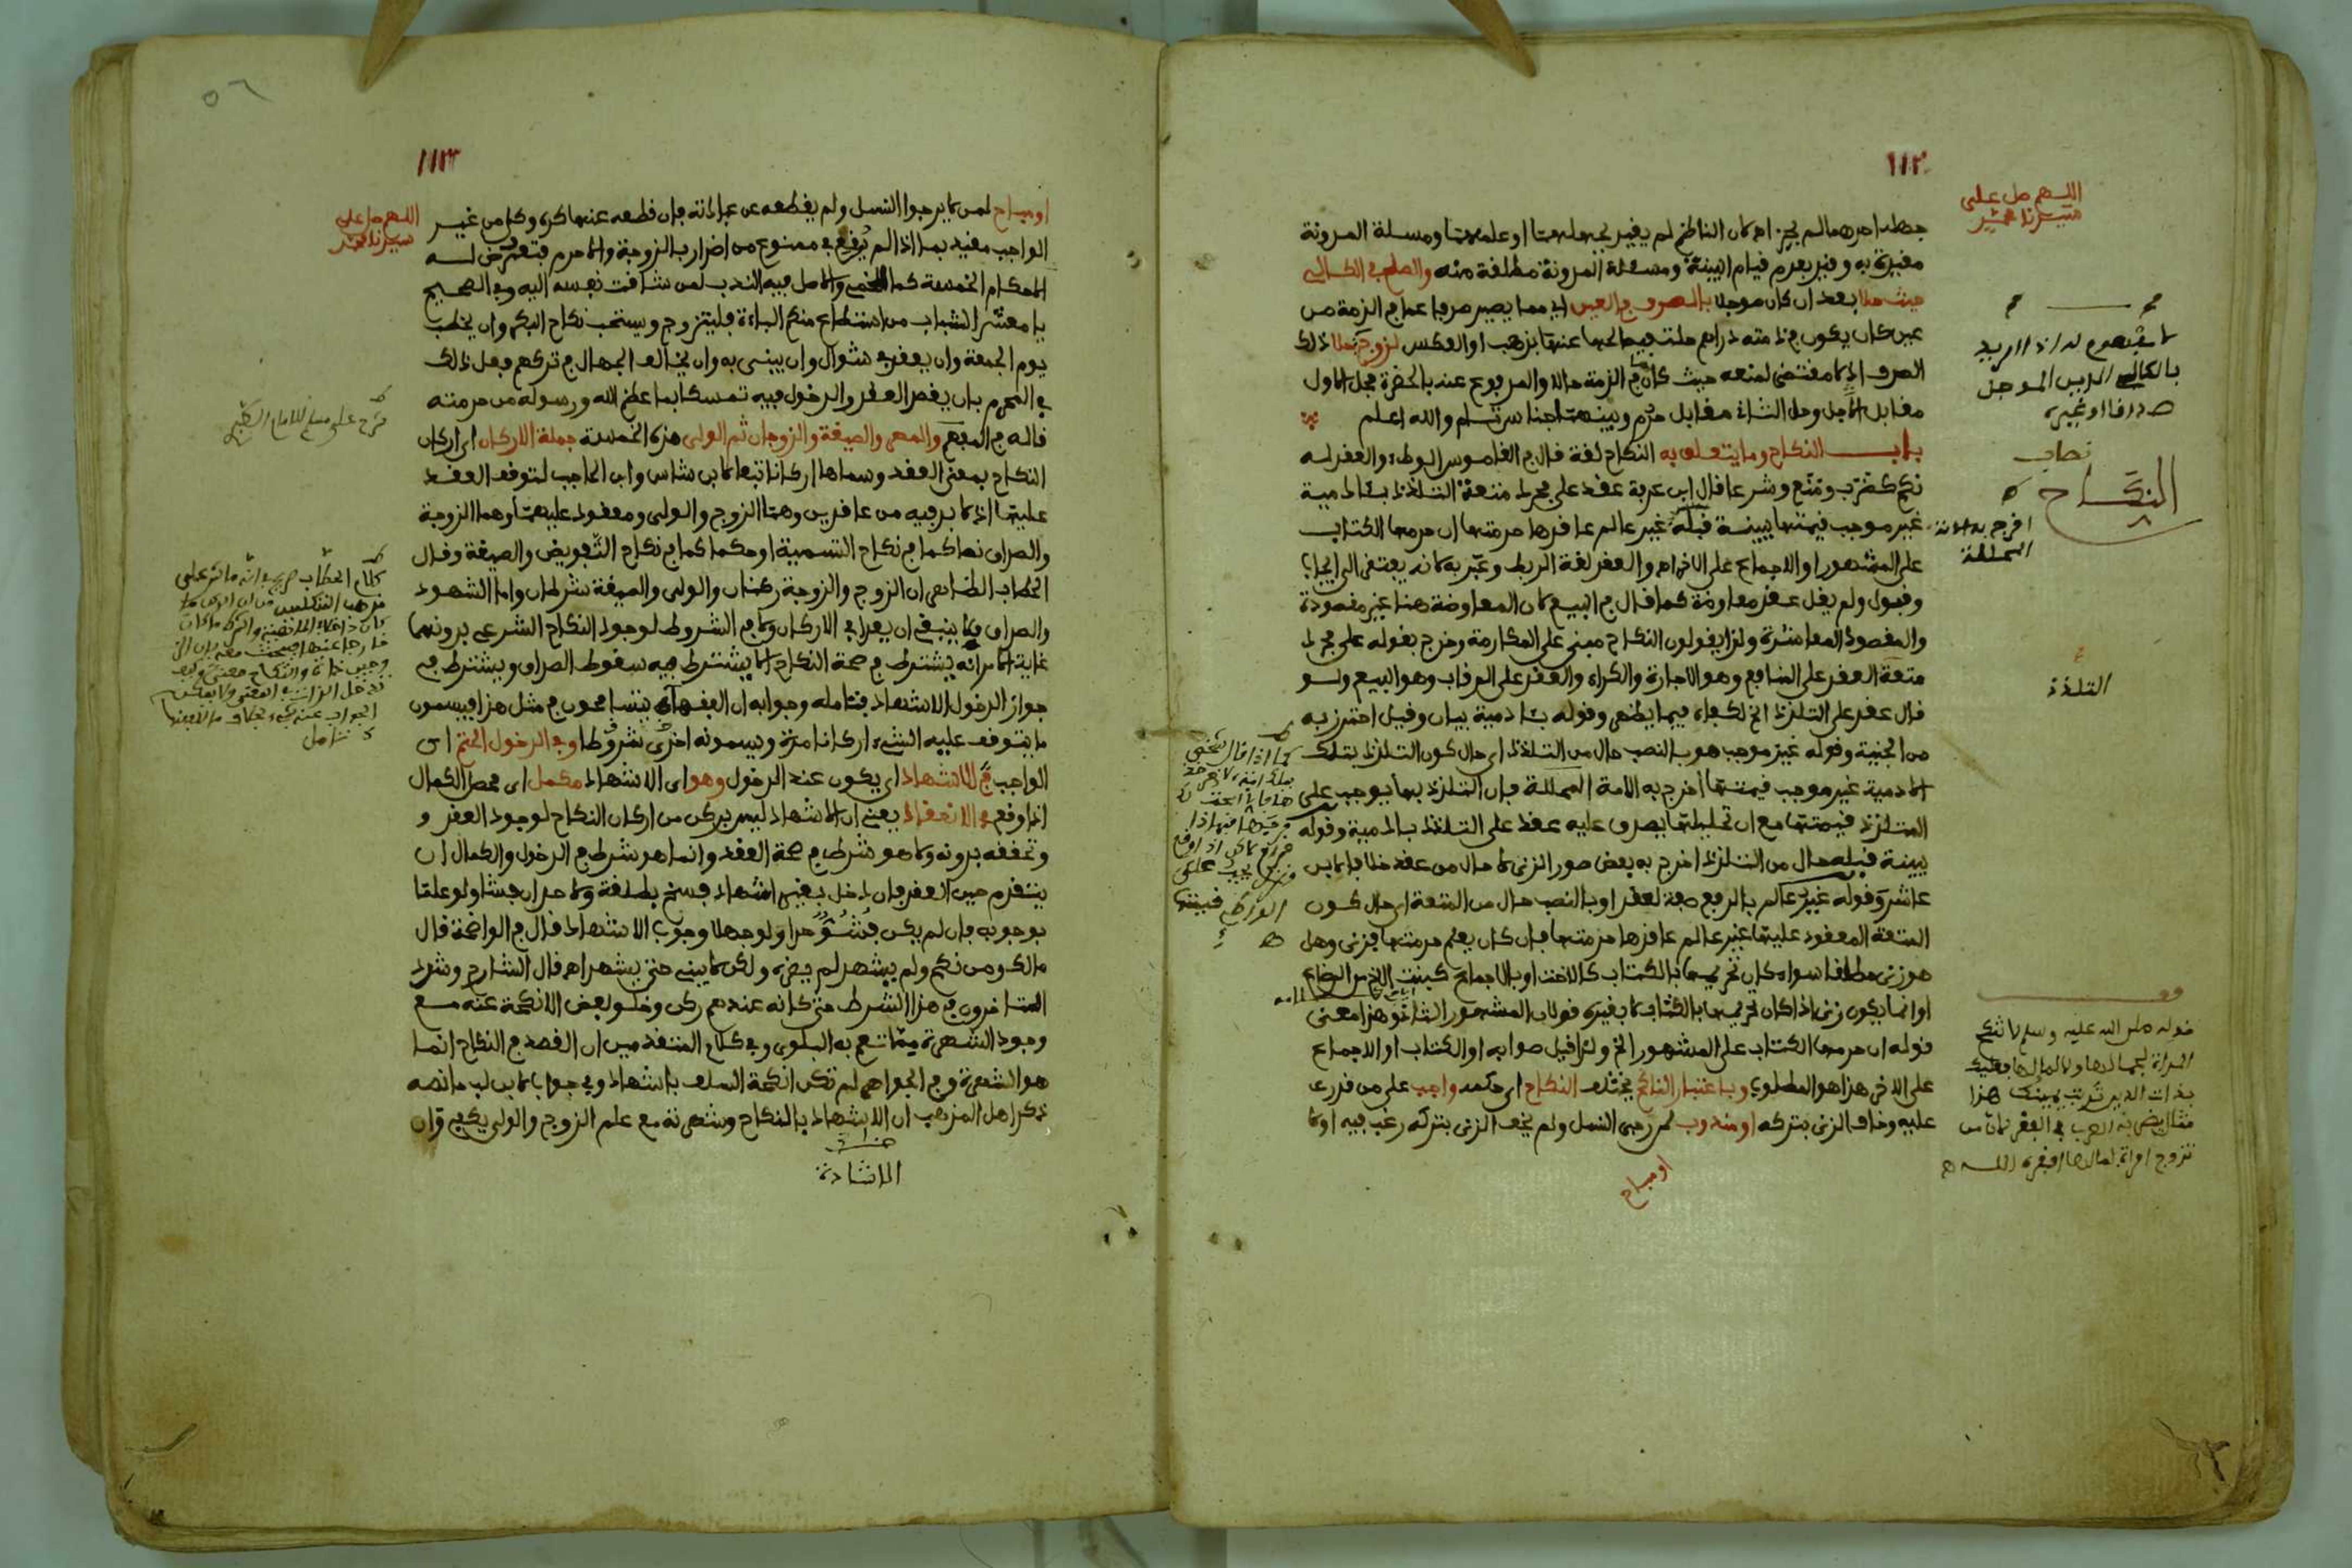 ١١٢
اللهم صل على
سيدنا محمد
جهله احدهما لم يجز اه كان الناظم لم يقيد بجهلهما او علمهما ومسئلة المدونة
مقيدة به وقيد بعدم قيام البينة ومسئلة المدونة مطلقة منه والصلح في الكالي
حيث حلا بعد ان كان موجلا بالصرف في العين اي مما يصير صرفا عما في الذمة من
عين كان يكون في ذمته دراهم حلت فيصالحها عنها بذهب او العكس لزوج جملا ذلك
الصرف اذ لا مقتضى لمنعه حيث كان ما في الذمة حالا والمدفوع عنه بالحضرة فحل الاول
مقابل الاجل وحل الثاني مقابل حرم وبينهما جناس تام والله اعلم
باب النكاح وما يتعلق به النكاح لغة قال في القاموس الوطء والعقد له
نكح كضرب ومنع وشرعا قال ابن عرفة عقد على مجرد متعة التلذذ بئادمية
غير موجب قيمتها ببينة قبله غير عالم عاقدها حرمتها ان حرمها الكتاب
على المشهور او الاجماع على الاخر اه والعقد لغة الربط وعبر به لانه يقتضي الايجاب
وقبول ولم يقل عقد معاوضة كما قال في البيع لان المعاوضة هنا غير مقصودة
والمقصود المعاشرة ولذا يقولون النكاح مبني على المكارمة وخرج بقوله على مجرد
متعة العقد على المنافع وهو الاجارة والكراء والعقد على الرقاب وهو البيع ولو
قال عقد على التلذذ الخ لكفاه فيما يظهر وقوله بئادمية بيان وقيل احترز به
من الجنية وقوله غير موجب هو بالنصب حال من التلذذ اي حال كون التلذذ بتلك
الادمية غير موجب قيمتها اخرج به الامة المحللة فان التلذذ بها يوجب على
المتلذذ قيمتها مع ان تحليلها يصدق عليه عقد على التلذذ بادمية وقوله
ببينة قبله حال من التلذذ اخرج به بعض صور الزنى لا حال من عقد خلافا لابن
عاشر وقوله غير عالم بالرفع صفة لعقد او بالنصب حال من المتعة اي حال كون
المتعة المعقود عليها غير عالم عاقدها حرمتها فان كان يعلم حرمتها فزنى وهل
هو زنى مطلقا سواء كان تحريمها بالكتاب كالاخت او بالاجماع كبنت الاخ من الرضاع
او انما يكون زنى اذا كان تحريمها بالكتاب لا بغيره قولان المشهور الثاني وهذا معنى
قوله ان حرمها الكتاب على المشهور الخ ولذا قيل صوابه او الكتاب او الاجماع
على الاخر هذا هو المطلوب وباعتبار الناكح يختلف النكاح اي حكمه واجب على من قدر
عليه وخاف الزنى بتركه او مندوب لمن رجى النسل ولم يخف الزنى بتركه رغب فيه او لا
او مباح
لا مفهوم له اذ المراد
بالكالي الدين الموجل
صداقا او غيره
نصاب
النكاح
اخرج به الامة
المحللة
التلذذ
قوله صلى الله عليه وسلم لا تنكح
المراة لجمالها ولا لمالها فعليك
بذات الدين تربت يمينك هذا
مثال يضربه العرب في الفقر لان من
تزوج امراة لمالها افقره الله
١١٣
٥٦
اللهم صل على
سيدنا محمد
او مباح لمن لا يرجوا النسل ولم يقطعه عن عبادته فان قطعه عنها كره وكل من غير
الواجب مقيد بما اذا لم يوقع في ممنوع من اضرار بالزوجة والا حرم فتعرض له
الاحكام الخمسة كما للخمي والاصل فيه الندب لمن تشاقت نفسه اليه وفي الصحيح
يا معشر الشباب من استطاع منكم الباءة فليتزوج ويستحب نكاح البكر وان يخطب
يوم الجمعة وان يعقد في شوال وان يبنى به وان يخالف الجهال في تركهم فعل ذلك
في المحرم بان يقصد العقد والدخول فيه تمسكا بما عظم الله ورسوله من حرمته
قاله في المفهم والمهر والصيغة والزوجان ثم الولي هذه الخمسة جملة الاركان اي اركان
النكاح بمعنى العقد وسماها اركانا تبعا لابن شاس وابن الحاجب لتوقف العقد
عليها اذ لا بد فيه من عاقدين وهما الزوج والولي ومعقود عليهما وهما الزوجة
والصداق نصا كما في نكاح التسمية او حكما كما في نكاح التفويض والصيغة وقال
الحطاب الظاهر ان الزوج والزوجة ركنان والولي والصيغة شرطان واما الشهود
والصداق فلا ينبغي ان يعدا في الاركان ولا في الشروط لوجود النكاح الشرعي بدونهما
غاية الامر انه يشترط في صحة النكاح الا يشترط فيه سقوط الصداق ويشترط في
جواز الدخول الاشهاد فتامله وجوابه ان الفقهاء يتسامحون في مثل هذا فيسمون
ما يتوقف عليه الشيء اركانا مرة ويسمونه اخرى شروطا وفي الدخول الحتم اي
الواجب في الاشهاد اي يكون عند الدخول وهو اي الاشهاد مكمل اي محصل الكمال
اذا وقع في الانعقاد يعني ان الاشهاد ليس بركن من اركان النكاح لوجود العقد و
وتحققه بدونه ولا هو شرط في صحة العقد وانما هو شرط في الدخول والكمال ان
يتقدم حين العقد فان دخل بغير اشهاد فسخ بطلقة ولا حد ان فشا ولو علما
بوجوبه فان لم يكن فشو حدا ولو جهلا وجوب الاشهاد قال في الواضحة قال
مالك ومن نكح ولم يشهد لم يضره ولكن لا يبني حتى يشهد اه قال الشارح وشدد
المتاخرون في هذا الشرط حتى كانه عندهم ركن وخلو بعض الانكحة عنه مع
وجود الشهرة مما تعم به البلوى وفي كلام المتقدمين ان القصد في النكاح انما
هو الشهرة وفي الجواهر لم تكن انكحة السلف باشهاد وفي جواب لابن لب ما نصه
ذكر اهل المذهب ان الاشهاد بالنكاح وشهرته مع علم الزوج والولي يكفي وان
الاشادة
شرح على مسلم للامام القرطبي